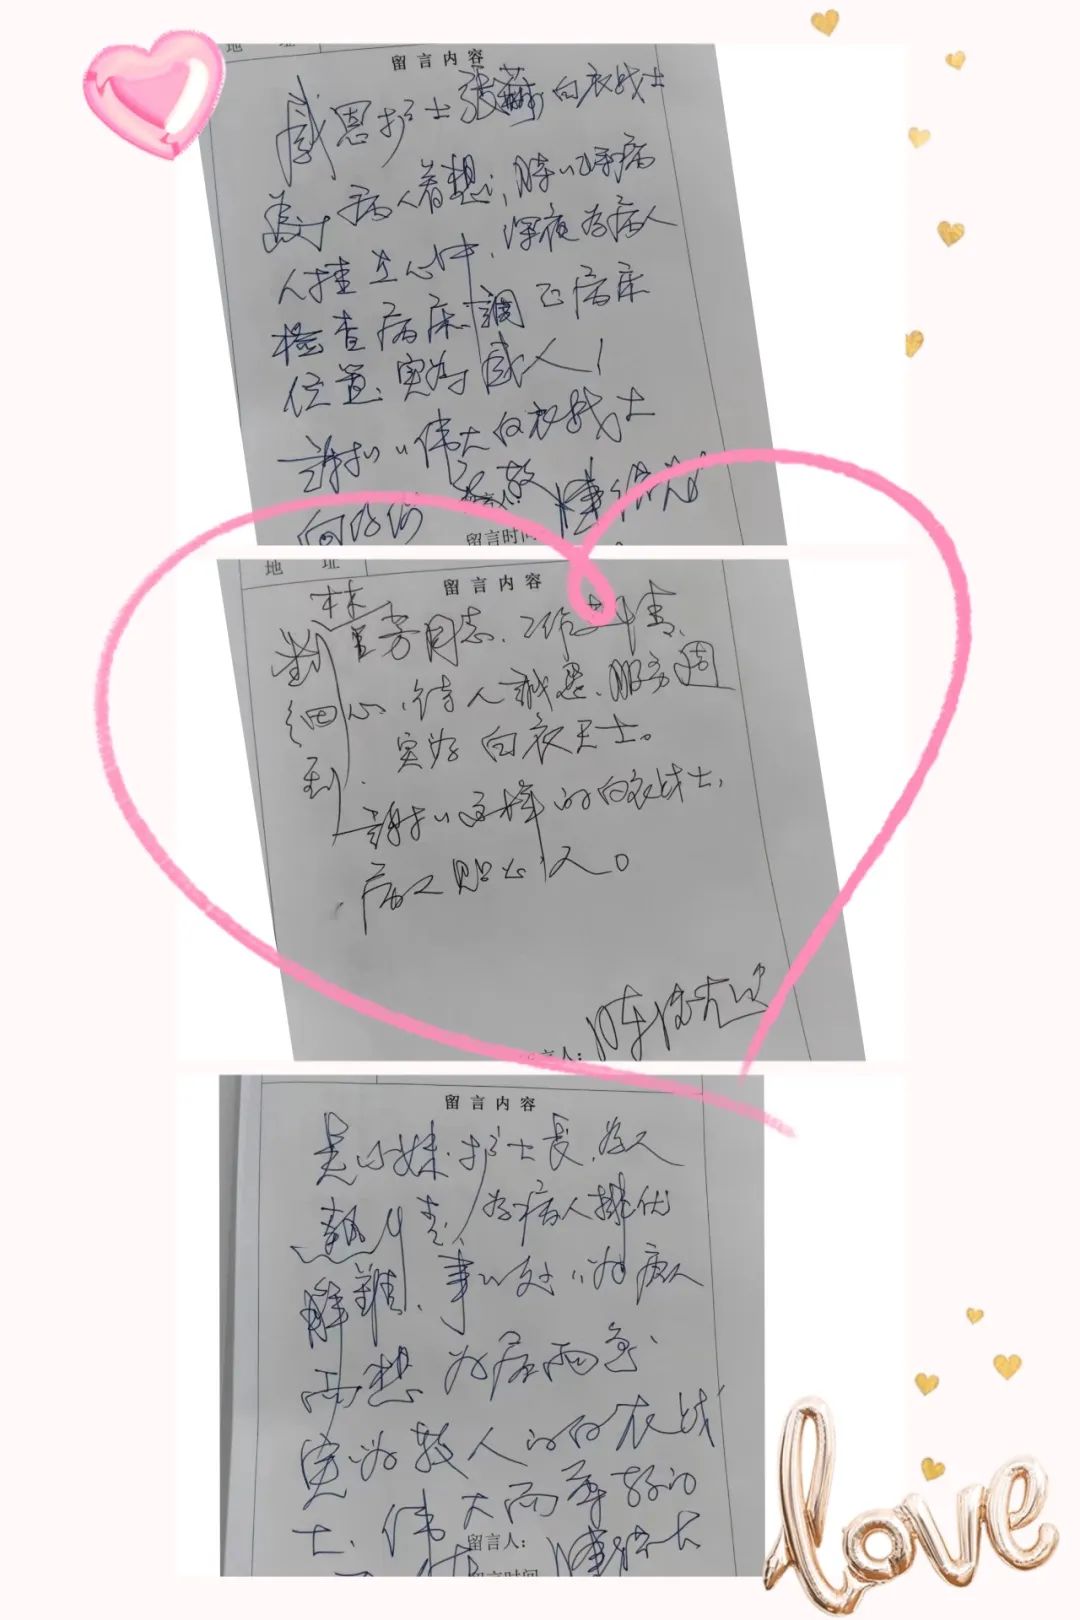 地 址
留言内容
感恩护士张 白衣战士
病人着想,时时将病
人挂在心中,深夜为病人
检查病床,调正病床
位置,实为感人!
谢谢伟大白衣战士
向你们 敬
留言人:
留言时间
地 址
留言内容
林 芳同志,工作热情、
细心,待人诚恳,服务週
到,实为白衣卫士。
谢谢这样的白衣战士,
病人贴心人。
留言人:
留言内容
吴小妹护士长,为人
热情,为病人排忧
解難,事事处处为病人
而想,为居而急
实为敬人的白衣战
士,伟大而年轻的
留言人:
留言时间
love